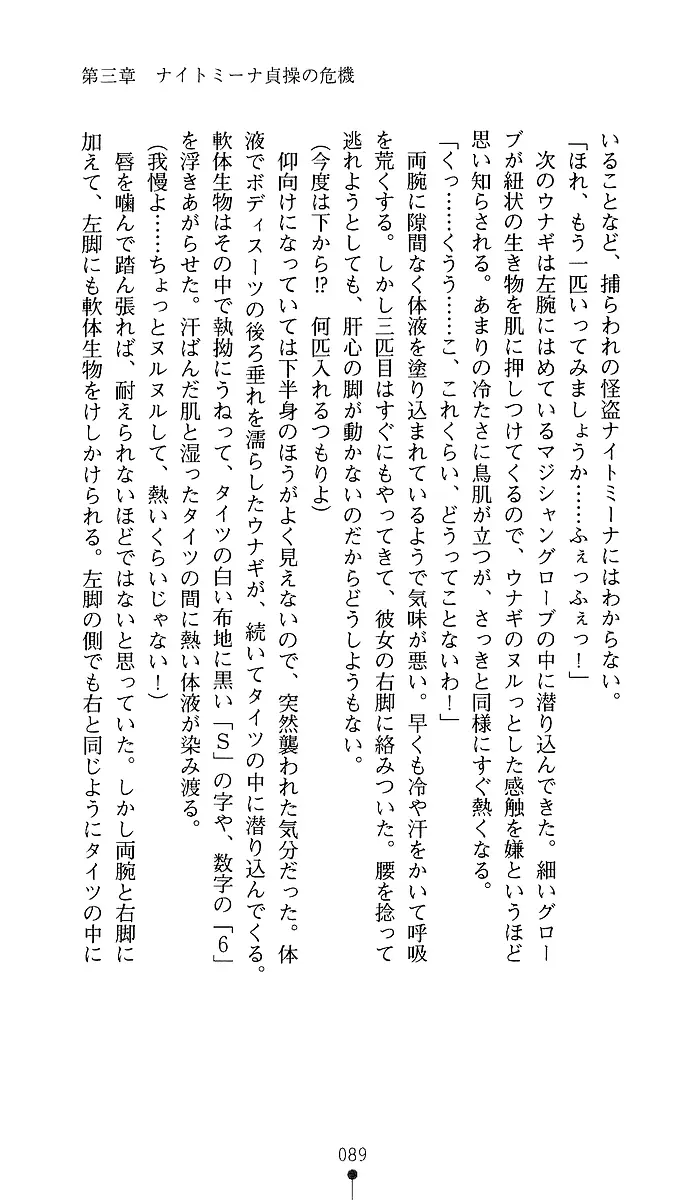 第三章　ナイトミーナ貞操の危機
いることなど、捕らわれの怪盗ナイトミーナにはわからない。
「ほれ、もう一匹いってみましょうか……ふぇっふぇっ！」
　次のウナギは左腕にはめているマジシャングローブの中に潜り込んできた。細いグロー
ブが紐状の生き物を肌に押しつけてくるので、ウナギのヌルっとした感触を嫌というほど
思い知らされる。あまりの冷たさに鳥肌が立つが、さっきと同様にすぐ熱くなる。
「くっ……くうう……こ、これくらい、どうってことないわ！」
　両腕に隙間なく体液を塗り込まれているようで気味が悪い。早くも冷や汗をかいて呼吸
を荒くする。しかし三匹目はすぐにもやってきて、彼女の右脚に絡みついた。腰を捻って
逃れようとしても、肝心の脚が動かないのだからどうしようもない。
（今度は下から!?　何匹入れるつもりよ）
　仰向けになっていては下半身のほうがよく見えないので、突然襲われた気分だった。体
液でボディスーツの後ろ垂れを濡らしたウナギが、続いてタイツの中に潜り込んでくる。
軟体生物はその中で執拗にうねって、タイツの白い布地に黒い「Ｓ」の字や、数字の「６」
を浮きあがらせた。汗ばんだ肌と湿ったタイツの間に熱い体液が染み渡る。
（我慢よ……ちょっとヌルヌルして、熱いくらいじゃない！）
　唇を噛んで踏ん張れば、耐えられないほどではないと思っていた。しかし両腕と右脚に
加えて、左脚にも軟体生物をけしかけられる。左脚の側でも右と同じようにタイツの中に
089